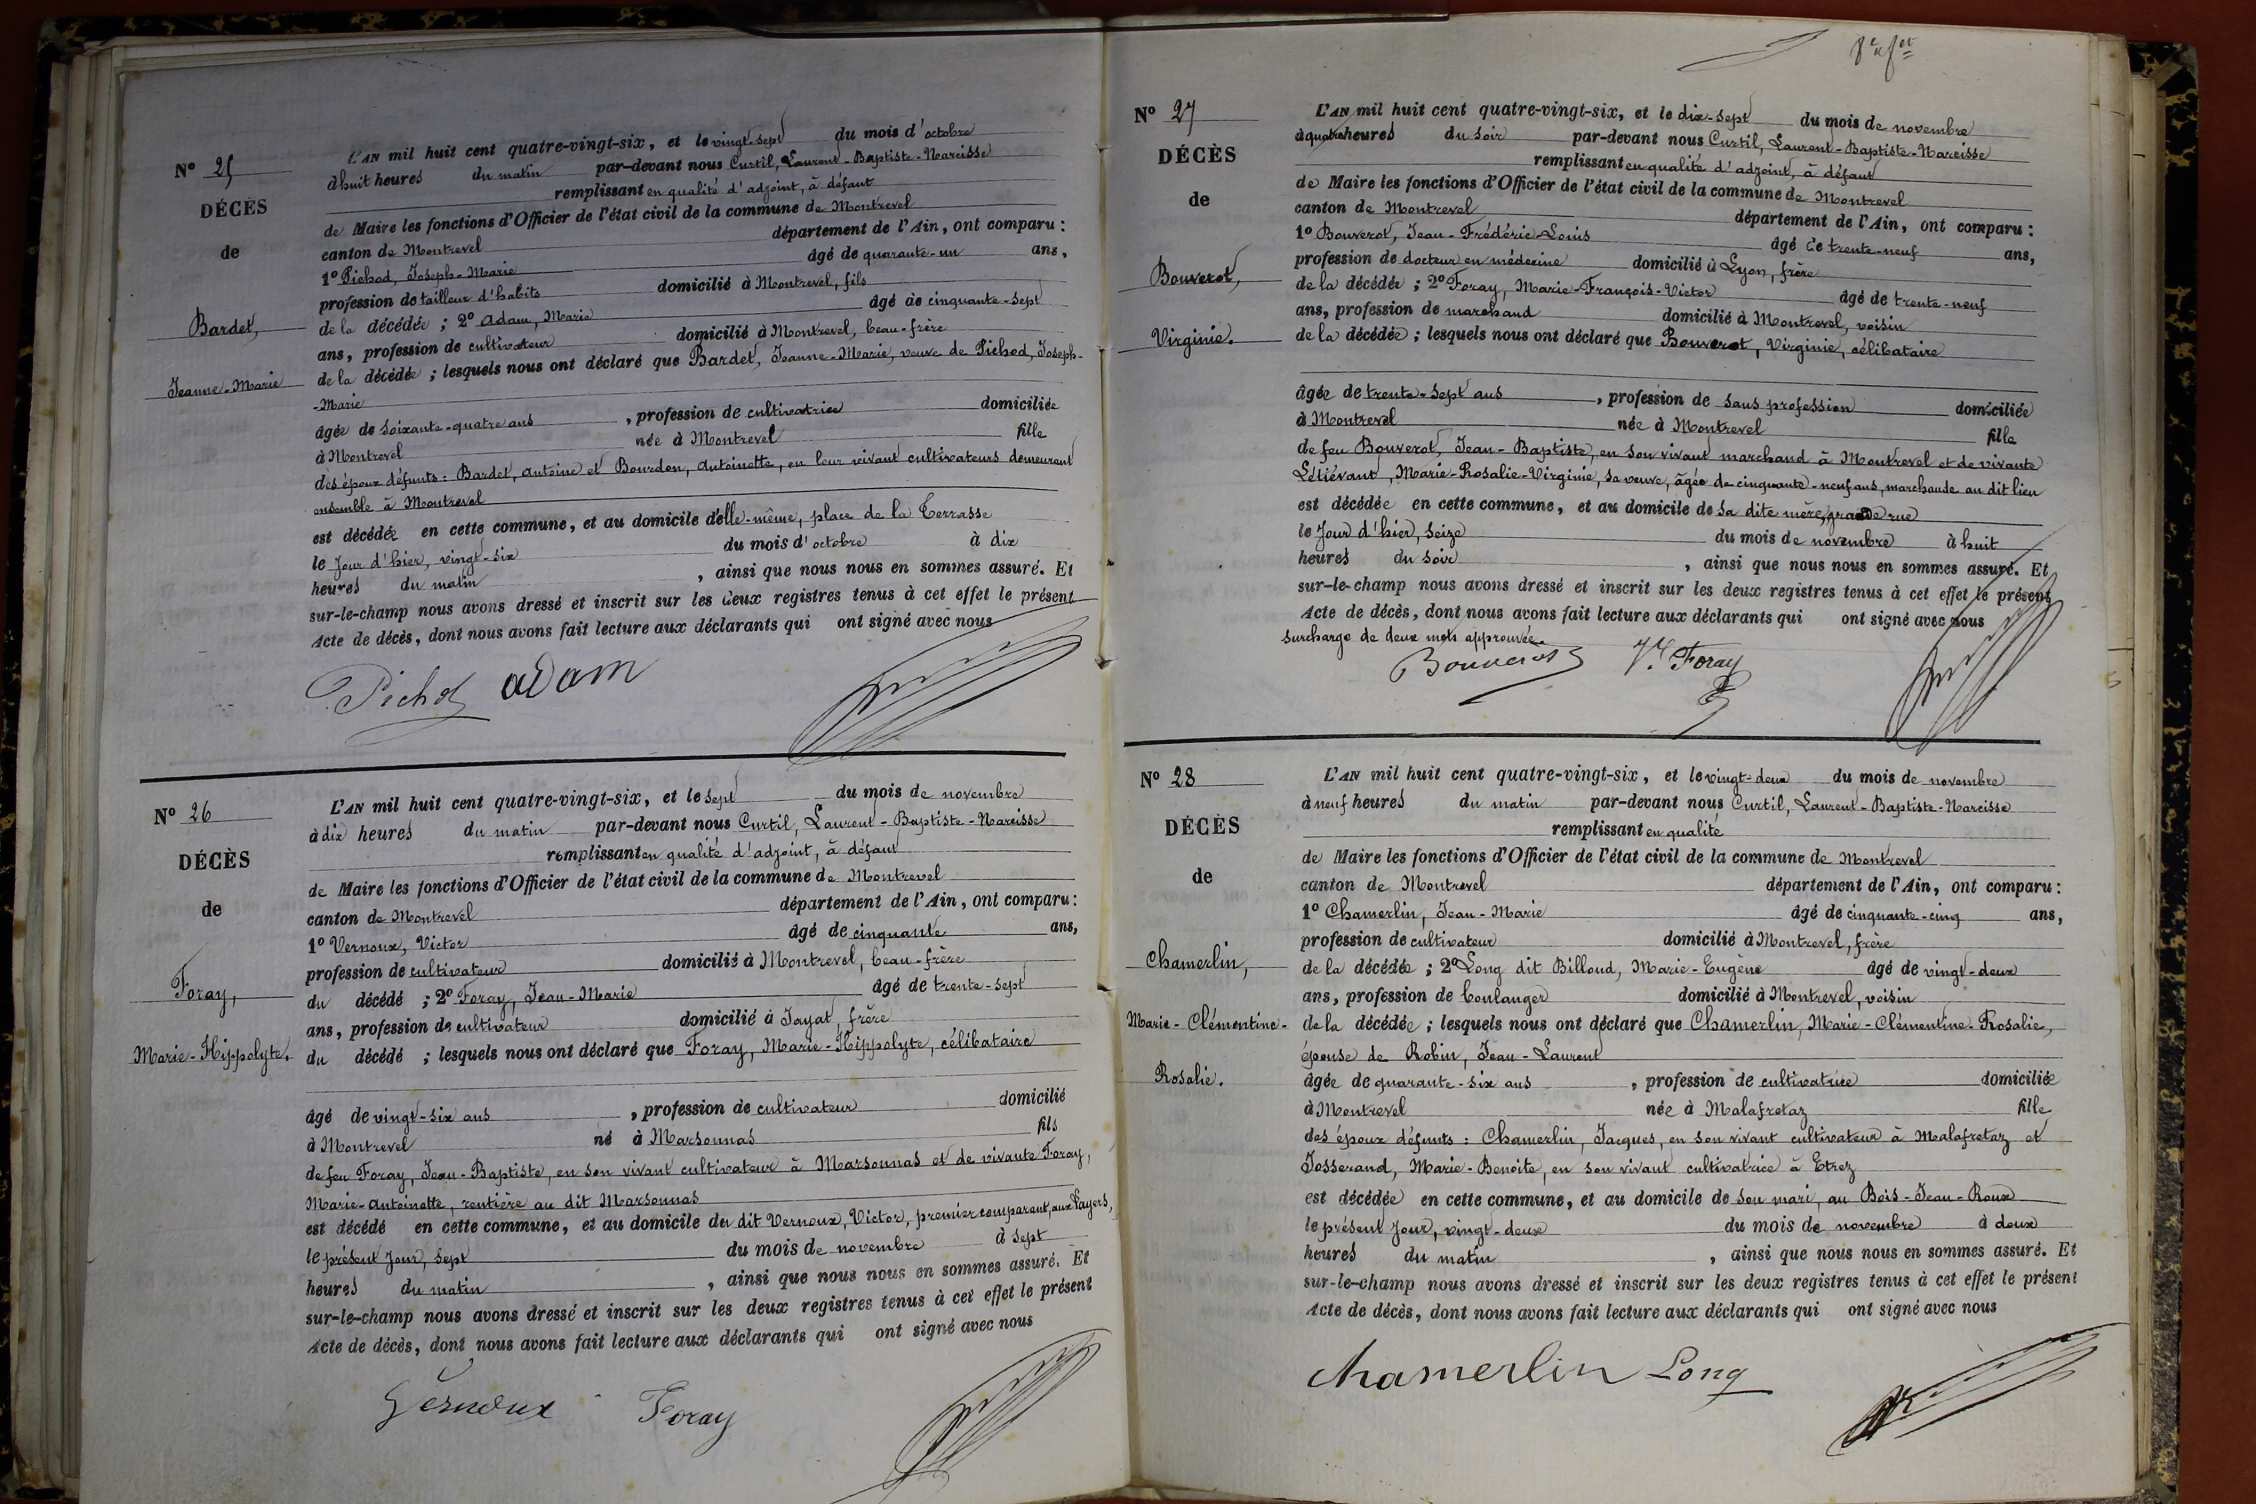 N° 25
DÉCÈS
de
Bardet,
Jeanne-Marie
L'AN mil huit cent quatre-vingt-six, et le vingt-sept du mois d'octobre
à huit heures du matin par-devant nous Curtil, Laurent-Baptiste-Narcisse
remplissant en qualité d'adjoint, à défaut
de Maire les fonctions d'Officier de l'état civil de la commune de Montrevel
canton de Montrevel département de l'Ain, ont comparu :
1° Pichod, Joseph-Marie âgé de quarante-un ans,
profession de tailleur d'habits domicilié à Montrevel, fils
de la décédée ; 2° Adam, Marie âgé de cinquante-sept
ans, profession de cultivateur domicilié à Montrevel, beau-frère
de la décédée ; lesquels nous ont déclaré que Bardet, Jeanne-Marie, veuve de Pichod, Joseph-
-Marie
âgée de soixante-quatre ans , profession de cultivatrice domiciliée
à Montrevel née à Montrevel fille
des époux défunts : Bardet, Antoine et Bourdon, Antoinette, en leur vivant cultivateurs demeurant
ensemble à Montrevel
est décédée en cette commune, et au domicile d'elle-même, place de la Terrasse
le jour d'hier, vingt-six du mois d'octobre à dix
heures du matin , ainsi que nous nous en sommes assuré. Et
sur-le-champ nous avons dressé et inscrit sur les deux registres tenus à cet effet le présent
Acte de décès, dont nous avons fait lecture aux déclarants qui ont signé avec nous
Pichod adam
N° 26
DÉCÈS
de
Foray,
Marie-Hippolyte.
L'AN mil huit cent quatre-vingt-six, et le sept du mois de novembre
à dix heures du matin par-devant nous Curtil, Laurent-Baptiste-Narcisse
remplissant en qualité d'adjoint, à défaut
de Maire les fonctions d'Officier de l'état civil de la commune de Montrevel
canton de Montrevel département de l'Ain, ont comparu :
1° Vernoux, Victor âgé de cinquante ans,
profession de cultivateur domicilié à Montrevel, beau-frère
du décédé ; 2° Foray, Jean-Marie âgé de trente-sept
ans, profession de cultivateur domicilié à Jayat, frère
du décédé ; lesquels nous ont déclaré que Foray, Marie-Hippolyte, célibataire
âgé de vingt-six ans , profession de cultivateur domicilié
à Montrevel né à Marsonnas fils
de feu Foray, Jean-Baptiste, en son vivant cultivateur à Marsonnas et de vivante Foray,
Marie-Antoinette, rentière au dit Marsonnas
est décédé en cette commune, et au domicile du dit Vernoux, Victor, premier comparant, aux Payers,
le présent jour, sept du mois de novembre à sept
heures du matin , ainsi que nous nous en sommes assuré. Et
sur-le-champ nous avons dressé et inscrit sur les deux registres tenus à cet effet le présent
Acte de décès, dont nous avons fait lecture aux déclarants qui ont signé avec nous
Vernoux Foray
N° 27
DÉCÈS
de
Bouverot,
Virginie.
L'AN mil huit cent quatre-vingt-six, et le dix-sept du mois de novembre
à quatre heures du soir par-devant nous Curtil, Laurent-Baptiste-Narcisse
remplissant en qualité d'adjoint, à défaut
de Maire les fonctions d'Officier de l'état civil de la commune de Montrevel
canton de Montrevel département de l'Ain, ont comparu :
1° Bouverot, Jean-Frédéric-Louis âgé de trente-neuf ans,
profession de docteur en médecine domicilié à Lyon, frère
de la décédée ; 2° Foray, Marie-François-Victor âgé de trente-neuf
ans, profession de marchand domicilié à Montrevel, voisin
de la décédée ; lesquels nous ont déclaré que Bouverot, Virginie, célibataire
âgée de trente-sept ans , profession de sans profession domiciliée
à Montrevel née à Montrevel fille
de feu Bouverot, Jean-Baptiste, en son vivant marchand à Montrevel et de vivante
Létiévant, Marie-Rosalie-Virginie, sa veuve, âgée de cinquante-neuf ans, marchande au dit lieu
est décédée en cette commune, et au domicile de sa dite mère, grande rue
le jour d'hier, seize du mois de novembre à huit
heures du soir , ainsi que nous nous en sommes assuré. Et
sur-le-champ nous avons dressé et inscrit sur les deux registres tenus à cet effet le présent
Acte de décès, dont nous avons fait lecture aux déclarants qui ont signé avec nous
surcharge de deux mots approuvée.
Bouverot Vor Foray
N° 28
DÉCÈS
de
Chamerlin,
Marie-Clémentine-
Rosalie.
L'AN mil huit cent quatre-vingt-six, et le vingt-deux du mois de novembre
à neuf heures du matin par-devant nous Curtil, Laurent-Baptiste-Narcisse
remplissant en qualité
de Maire les fonctions d'Officier de l'état civil de la commune de Montrevel
canton de Montrevel département de l'Ain, ont comparu :
1° Chamerlin, Jean-Marie âgé de cinquante-cinq ans,
profession de cultivateur domicilié à Montrevel, frère
de la décédée ; 2° Long dit Billoud, Marie-Eugène âgé de vingt-deux
ans, profession de boulanger domicilié à Montrevel, voisin
de la décédée ; lesquels nous ont déclaré que Chamerlin, Marie-Clémentine-Rosalie,
épouse de Robin, Jean-Laurent
âgée de quarante-six ans , profession de cultivatrice domiciliée
à Montrevel née à Malafretaz fille
des époux défunts : Chamerlin, Jacques, en son vivant cultivateur à Malafretaz et
Josserand, Marie-Benoite, en son vivant cultivatrice à Etrez
est décédée en cette commune, et au domicile de son mari, au Bois-Jean-Roux
le présent jour, vingt-deux du mois de novembre à deux
heures du matin , ainsi que nous nous en sommes assuré. Et
sur-le-champ nous avons dressé et inscrit sur les deux registres tenus à cet effet le présent
Acte de décès, dont nous avons fait lecture aux déclarants qui ont signé avec nous
chamerlin Long